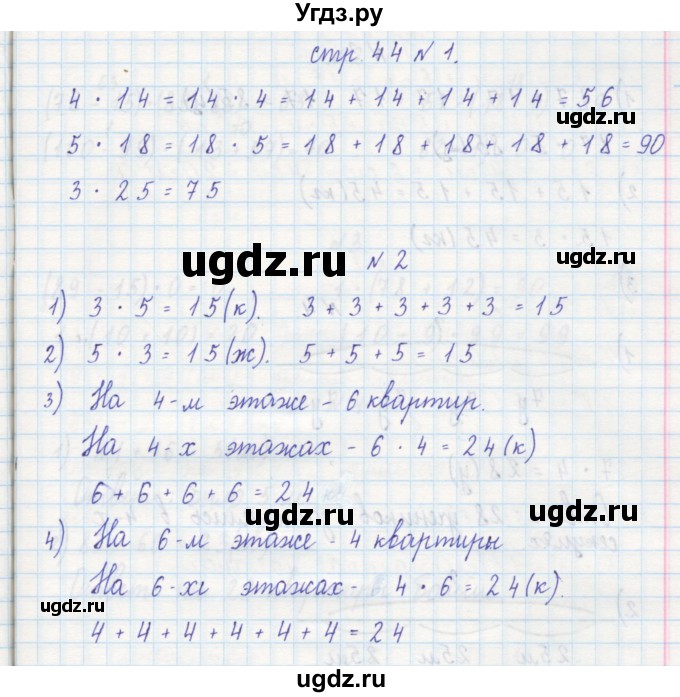 Угдз.ру
стр. 44 № 1.
4 · 14 = 14 · 4 = 14 + 14 + 14 + 14 = 56
ugdz.ru
5 · 18 = 18 · 5 = 18 + 18 + 18 + 18 + 18 = 90
3 · 25 = 75
ugdz.ru
ugdz.ru
№ 2
1) 3 · 5 = 15 (к). 3 + 3 + 3 + 3 + 3 = 15
2) 5 · 3 = 15 (ж). 5 + 5 + 5 = 15
ugdz.ru
3) На 4-м этаже - 6 квартир.
На 4-х этажах - 6 · 4 = 24 (к)
6 + 6 + 6 + 6 = 24
ugdz.ru
ugdz.ru
4) На 6-м этаже - 4 квартиры
На 6-хi этажах - 4 · 6 = 24 (к).
ugdz.ru
ugdz.ru
4 + 4 + 4 + 4 + 4 + 4 = 24
ugdz.ru